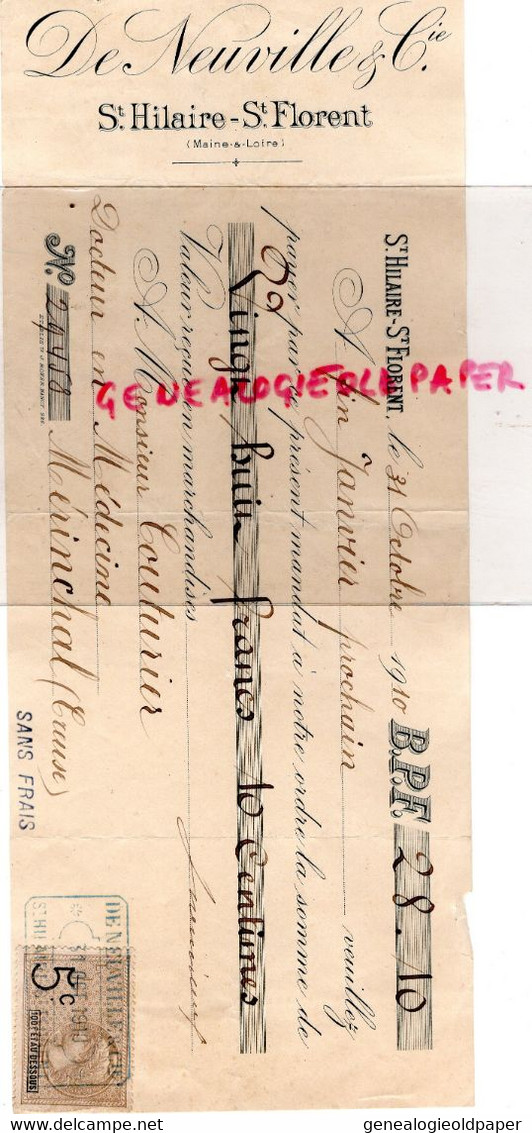 De Neuville & Cie.
St. Hilaire - St. Florent
(Maine-&-Loire)
St Hilaire-St Florent, le 31 Octobre 1910 B.P.F. 28.10
A fin Janvier prochain veuillez
payer par ce présent mandat à notre ordre la somme de
Vingt huit francs 10 Centimes
Valeur reçue en marchandises
A Monsieur Couturier
Docteur en Médecine
No. 24458 Mérinchal (Creuse)
SANS FRAIS
GENEALOGIEOLDPAPER
DE NEUVILLE & CIE
1910
5c
100F ET AU DESSOUS
delcampe.net
genealogieoldpaper